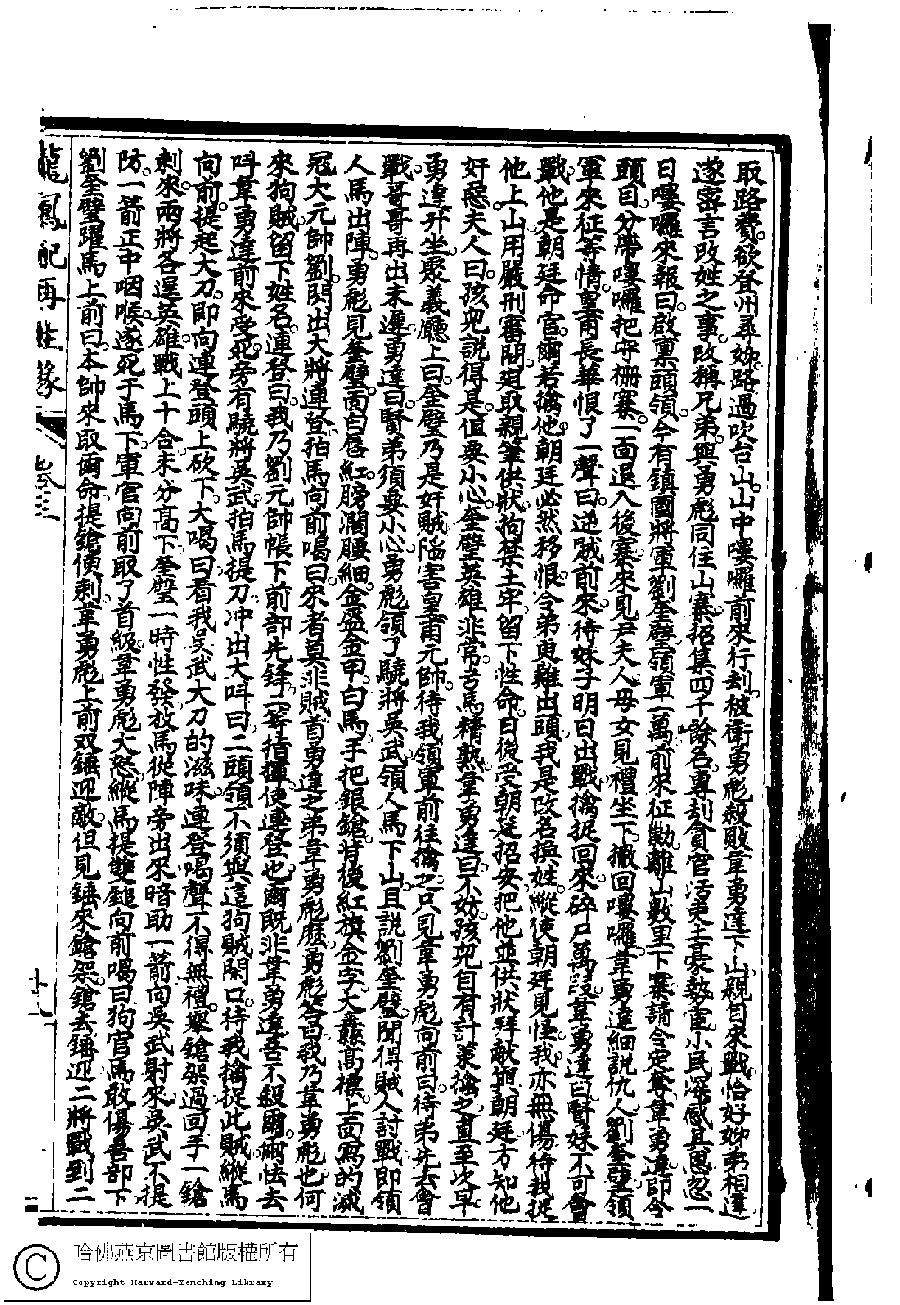 取路費欲登州尋姊路過吹台山山中嘍囉前來行刦被衛勇彪殺敗韋勇達下山親自來戰恰好姊弟相逢
遂密言改姓之事改稱兄弟與勇彪同住山寨招集四千餘名專刦貪官污吏土豪勢重小民深感其恩忽一
日嘍囉來報曰啟稟頭領今有鎮國將軍劉奎璧領軍一萬前來征勦離山數里下寨請令定奪韋勇達即令
頭目分帶嘍囉把守柵寨一面退入後寨來見尹夫人母女見禮坐下撤回嘍囉韋勇達細説仇人劉奎璧領
軍來征等情皇甫長華恨了一聲曰逆賊前來待妹子明日出戰擒捉回來碎尸萬段韋勇達曰賢妹不可會
戰他是朝廷命官爾若擒他朝廷必然移恨令弟更難出頭我是改名換姓縱使朝廷見怪我亦無傷待我捉
他上山用嚴刑審問廻取親筆供狀拘禁土牢留下性命日後受朝廷招安把他並供狀拜獻朝廷方知他
好惡夫人曰孩兒説得是但要小心奎璧英雄非常弓馬精熟韋勇達曰不妨孩兒自有計策擒之直至次早
勇達升坐聚義廳上曰奎璧乃是奸賊陷害皇甫元帥待我領軍前往擒之只見韋勇彪向前曰待弟先去會
戰哥哥再出未遲勇達曰賢弟須要小心勇彪領了驍將吳武領人馬下山且説劉奎璧聞得賊人討戰即領
人馬出陣勇彪見奎璧面白唇紅膀濶腰細金盔金甲白馬手把銀鎗背後紅旗金字大纛高標上面寫的滅
冠大元帥劉閃出大將連登拍馬向前喝曰來者莫非賊首勇達之弟韋勇彪麽勇彪答曰我乃韋勇彪也何
來狗賊留下姓名連登曰我乃劉元帥帳下前部先鋒二等指揮使連登也爾既非韋勇達吾不殺爾爾快去
呌韋勇達前來受死旁有驍將吳武拍馬提刀冲出大呌曰二頭領不須與這狗賊閗口待我擒捉此賊縱馬
向前提起大刀即向連登頭上砍下大喝曰看我吳武大刀的滋味連登喝聲不得無禮舉鎗架過回手一鎗
刺來兩將各逞英雄戰上十合未分高下奎璧一時性發放馬從陣旁出來暗助一箭向吳武射來吳武不提
防一箭正中咽喉遂死于馬下軍官向前取了首級韋勇彪大怒縱馬提雙鎚向前喝曰狗官焉敢傷吾部下
劉奎璧躍馬上前曰本帥來取爾命提鎗便刺韋勇彪上前双錘迎敵但見錘來鎗架鎗去錘迎二將戰到二
龍鳳配再生緣 卷三 十二
哈佛燕京圖書館版權所有
Copyright Harvard-Yenching Library